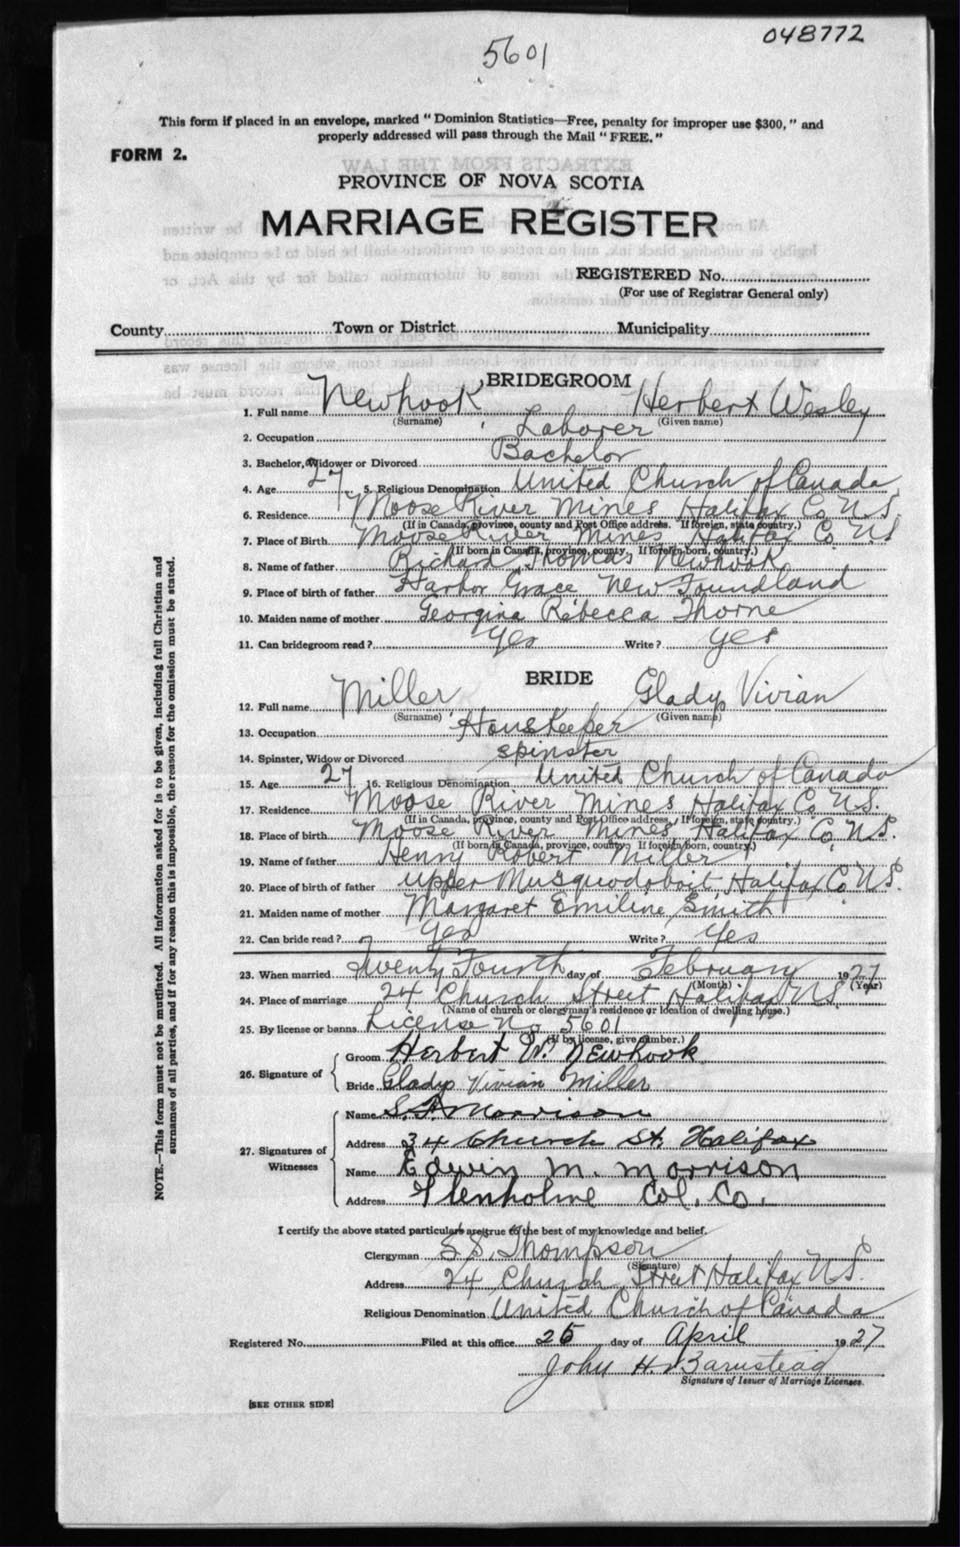 048772
5601
This form if placed in an envelope, marked "Dominion Statistics—Free, penalty for improper use $300," and
properly addressed will pass through the Mail "FREE."
FORM 2.
PROVINCE OF NOVA SCOTIA
MARRIAGE REGISTER
REGISTERED No.
(For use of Registrar General only)
County Town or District Municipality
BRIDEGROOM
1. Full name Newhook Herbert Wesley
(Surname) (Given name)
2. Occupation Laborer
3. Bachelor, Widower or Divorced Bachelor
4. Age 27 5. Religious Denomination United Church of Canada
6. Residence Moose River Mines Halifax Co N.S.
(If in Canada, province, county and Post Office address. If foreign, state country.)
7. Place of Birth Moose River Mines Halifax Co. N.S
(If born in Canada, province, county. If foreign born, country.)
8. Name of father Richard Thomas Newhook
9. Place of birth of father Harbor Grace New Foundland
10. Maiden name of mother Georgina Rebecca Thorne
11. Can bridegroom read? Yes Write? yes
BRIDE
12. Full name Miller Gladys Vivian
(Surname) (Given name)
13. Occupation Houskeeper
14. Spinster, Widow or Divorced spinster
15. Age 27 16. Religious Denomination United Church of Canada
17. Residence Moose River Mines Halifax Co N.S.
(If in Canada, province, county and Post Office address. If foreign, state country.)
18. Place of birth Moose River Mines Halifax Co, N.S.
(If born in Canada, province, county. If foreign born, country.)
19. Name of father Henry Robert Miller
20. Place of birth of father upper Musquodoboit Halifax Co N.S.
21. Maiden name of mother Margaret Emiline Smith
22. Can bride read? Yes Write? Yes
23. When married Twenty Fourth day of February 1927
(Month) (Year)
24. Place of marriage 24 Church Street Halifax N.S.
(Name of church or clergyman's residence or location of dwelling house.)
25. By license or banns License No 5601
(If by license, give number.)
26. Signature of
Groom Herbert W. Newhook
Bride Gladys Vivian Miller
27. Signatures of Witnesses
Name Morrison
Address 34 Church St. Halifax
Name Edwin M. Morrison
Address Glenholme Col. Co.
I certify the above stated particulars are true to the best of my knowledge and belief.
Clergyman S.S. Thompson
(Signature)
Address 24 Church Street Halifax N.S.
Religious Denomination United Church of Canada
Registered No. Filed at this office 25 day of April 1927
John H. Barnstead
Signature of Issuer of Marriage Licenses.
[SEE OTHER SIDE]
NOTE.—This form must not be mutilated. All information asked for is to be given, including full Christian and
surnames of all parties, and if for any reason this is impossible, the reason for the omission must be stated.